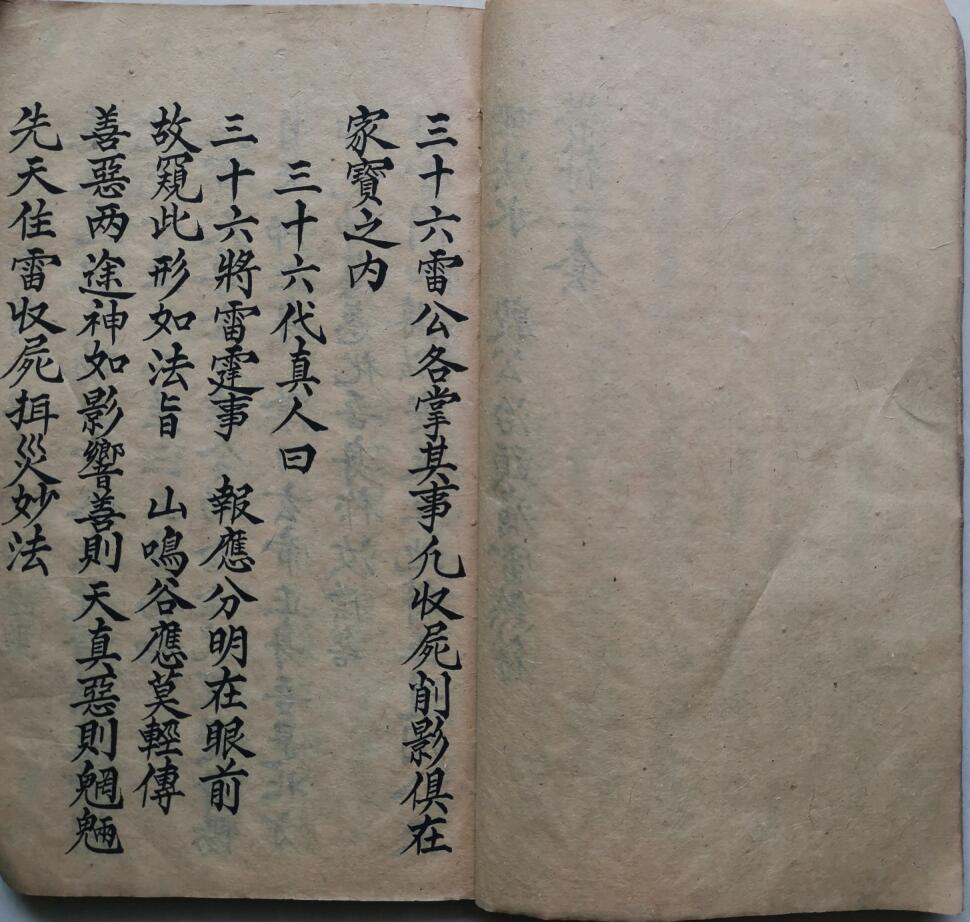 三十六雷公各掌其事凢收屍削影俱在
家寶之内
三十六代真人曰
三十六將雷霆事　報應分明在眼前
故窺此形如法旨　山鳴谷應莫輕傳
善惡两途神如影響善則天真惡則魍魎
先天住雷収屍揖災妙法